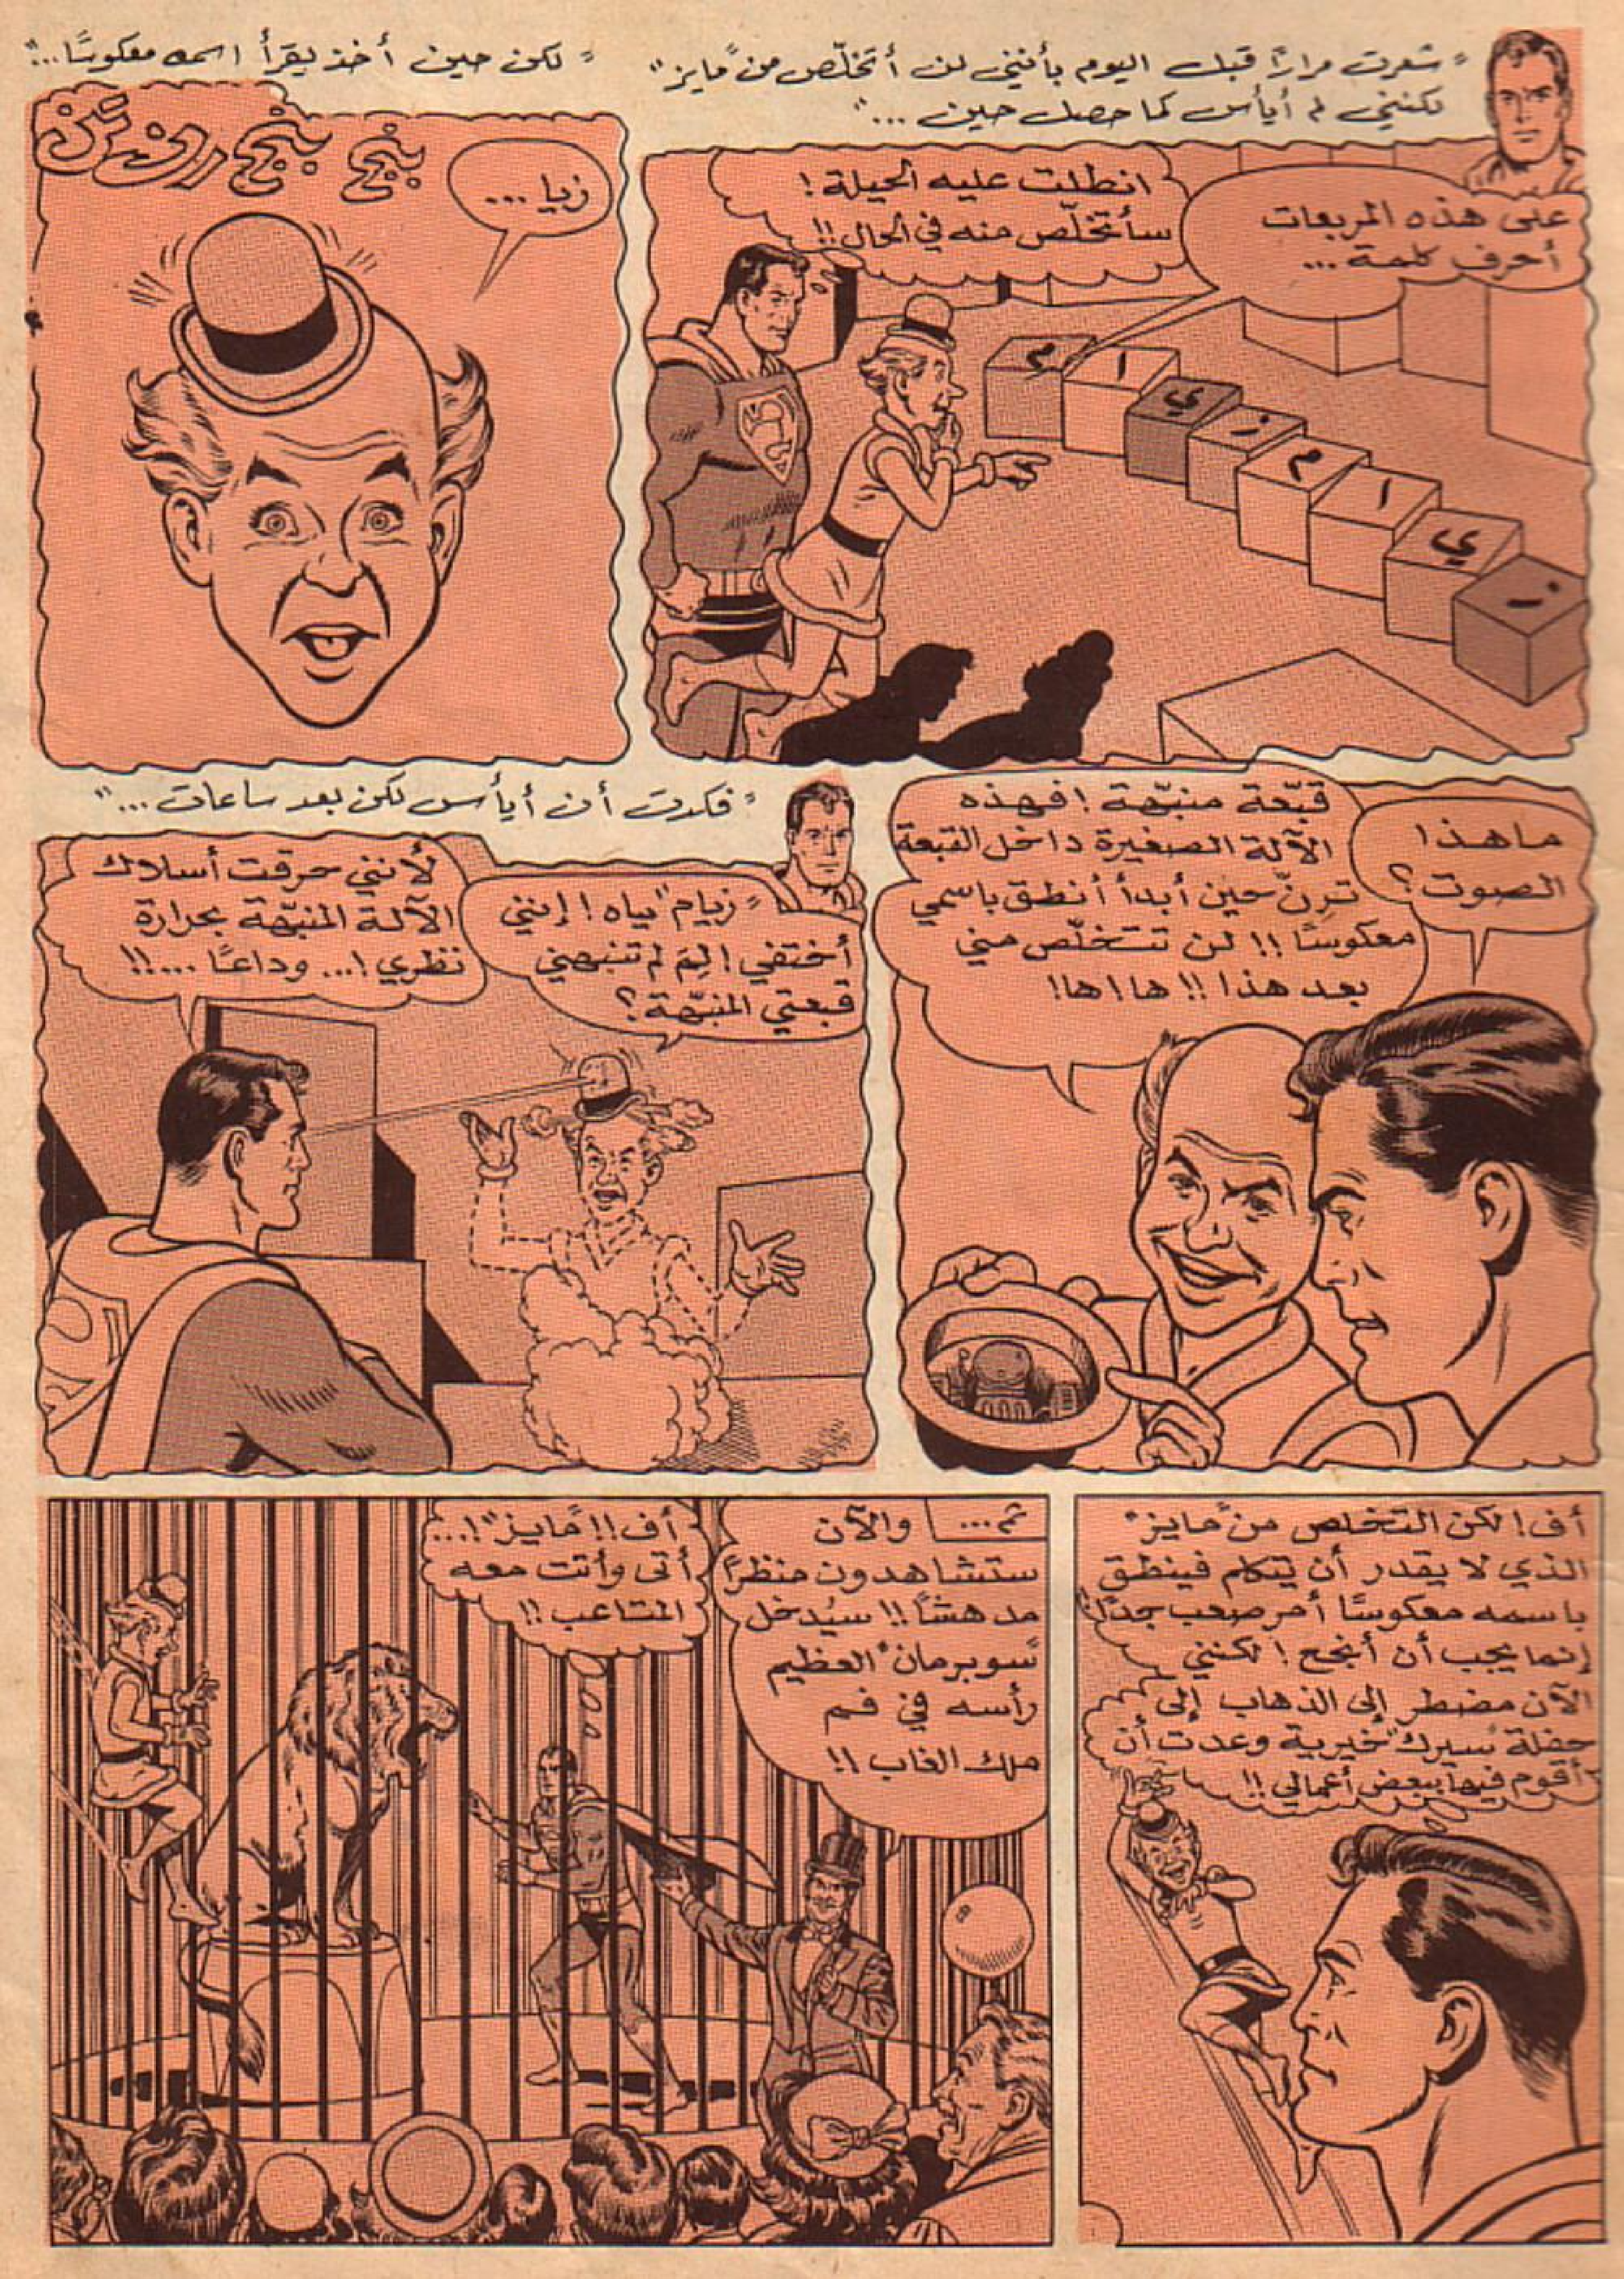 "شعرت مرارًا قبل اليوم بأنني لن أتخلّص من "مايز"
لكنني لم أيأس كما حصل حين ..."
على هذه المربعات
أحرف كلمة ...
انطلت عليه الحيلة !
سأتخلّص منه في الحال !!
م
ا
ي
ز
م
ا
ي
ز
"لكن حين أخذ يقرأ اسمه معكوسًا ..."
زيا ...
بنج بنج رن تن
ما هذا
الصوت ؟
قبّعة منبّهة ! فهذه
الآلة الصغيرة داخل القبعة
ترنّ حين أبدأ أنطق باسمي
معكوسًا !! لن تتخلّص مني
بعد هذا !! ها ! ها !
"فكدت أن أيأس لكن بعد ساعات ..."
"زيام" ياه ! إنني
أختفي ! لِمَ لم تنبهني
قبعتي المنبّهة ؟
لأنني حرقت أسلاك
الآلة المنبّهة بحرارة
نظري ! ... وداعًا ... !!
أف ! لكن التخلص من "مايز"
الذي لا يقدر أن يتكلم فينطق
باسمه معكوسًا أمر صعب جدًا !
إنما يجب أن أنجح ! لكنني
الآن مضطر إلى الذهاب إلى
حفلة "سيرك" خيرية وعدت أن
أقوم فيها ببعض أعمالي !!
ثم ...
والآن
ستشاهدون منظرًا
مدهشًا !! سيُدخل
"سوبرمان" العظيم
رأسه في فم
ملك الغاب !!
أف !! "مايز" ! ...
أتى وأتت معه
المتاعب !!